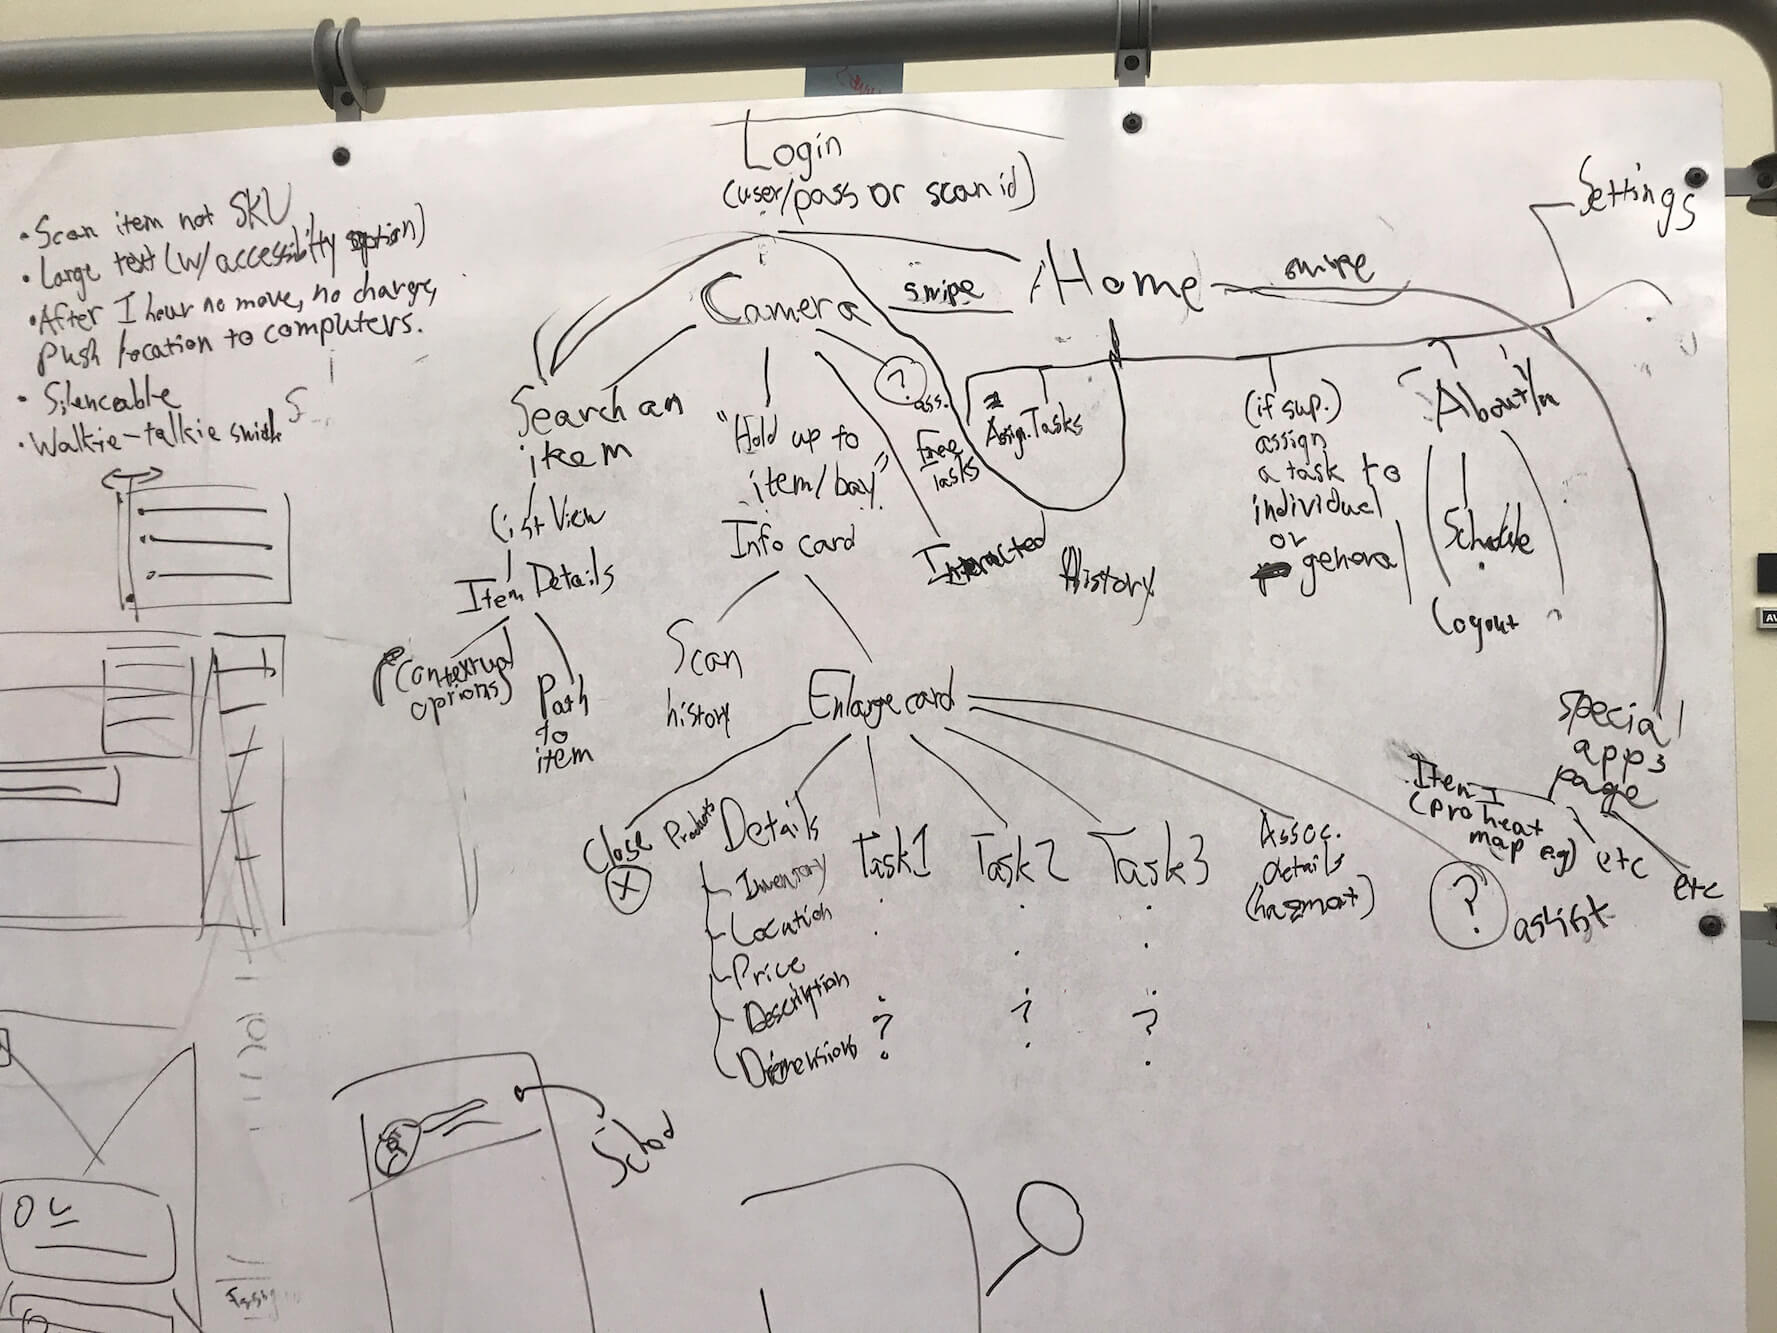 Login
(user/pass or scan id)
Settings
• Scan item not SKU
• Large text (w/ accessibility option)
• After 1 hour no move, no charge,
push location to computers.
• Silenceable
• Walkie-talkie switch
Camera
swipe
Home
swipe
Search an
item
List View
Item Details
(Contextual
options)
Path
to
item
"Hold up to
item/bay"
Info card
Scan
history
Enlarge card
?
ass.
Free
Tasks
Assign. Tasks
Interacted
History
(if sup.)
assign
a task to
individual
or
general
About Yn
Schedule
Logout
special
apps
page
Item I
(pro heat
map e.g)
etc
etc
Close
X
Products
Details
Inventory
Location
Price
Description
Dimensions
Task 1
?
Task 2
?
Task 3
?
Assoc.
details
(hazmat)
?
assist
Sched